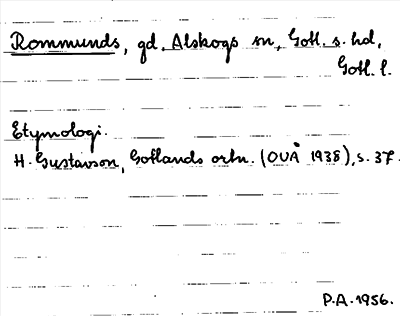 Rommunds, gd, Alskogs sn, Gotl. s. hd,
Gotl. l.
Etymologi.
H. Gustavson, Gotlands ortn. (OUÅ 1938), s. 37.
P.A. 1956.